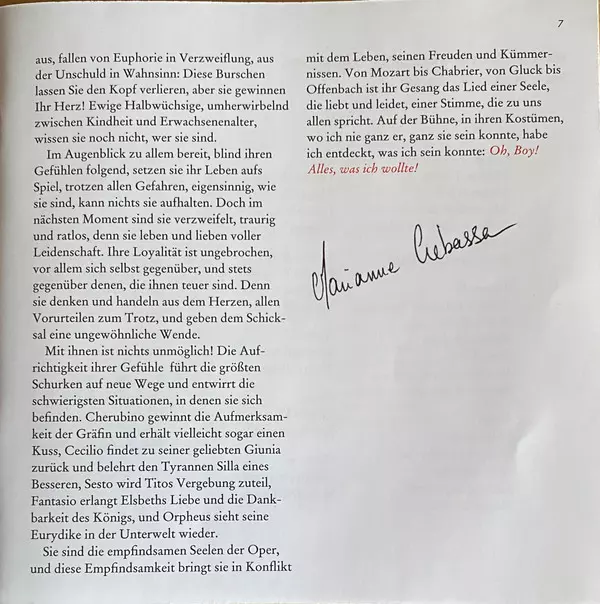 7
aus, fallen von Euphorie in Verzweiflung, aus
der Unschuld in Wahnsinn: Diese Burschen
lassen Sie den Kopf verlieren, aber sie gewinnen
Ihr Herz! Ewige Halbwüchsige, umherwirbelnd
zwischen Kindheit und Erwachsenenalter,
wissen sie noch nicht, wer sie sind.
Im Augenblick zu allem bereit, blind ihren
Gefühlen folgend, setzen sie ihr Leben aufs
Spiel, trotzen allen Gefahren, eigensinnig, wie
sie sind, kann nichts sie aufhalten. Doch im
nächsten Moment sind sie verzweifelt, traurig
und ratlos, denn sie leben und lieben voller
Leidenschaft. Ihre Loyalität ist ungebrochen,
vor allem sich selbst gegenüber, und stets
gegenüber denen, die ihnen teuer sind. Denn
sie denken und handeln aus dem Herzen, allen
Vorurteilen zum Trotz, und geben dem Schick-
sal eine ungewöhnliche Wende.
Mit ihnen ist nichts unmöglich! Die Auf-
richtigkeit ihrer Gefühle führt die größten
Schurken auf neue Wege und entwirrt die
schwierigsten Situationen, in denen sie sich
befinden. Cherubino gewinnt die Aufmerksam-
keit der Gräfin und erhält vielleicht sogar einen
Kuss, Cecilio findet zu seiner geliebten Giunia
zurück und belehrt den Tyrannen Silla eines
Besseren, Sesto wird Titos Vergebung zuteil,
Fantasio erlangt Elsbeths Liebe und die Dank-
barkeit des Königs, und Orpheus sieht seine
Eurydike in der Unterwelt wieder.
Sie sind die empfindsamen Seelen der Oper,
und diese Empfindsamkeit bringt sie in Konflikt
mit dem Leben, seinen Freuden und Kümmer-
nissen. Von Mozart bis Chabrier, von Gluck bis
Offenbach ist ihr Gesang das Lied einer Seele,
die liebt und leidet, einer Stimme, die zu uns
allen spricht. Auf der Bühne, in ihren Kostümen,
wo ich nie ganz er, ganz sie sein konnte, habe
ich entdeckt, was ich sein konnte: Oh, Boy!
Alles, was ich wollte!
Marianne Crebassa